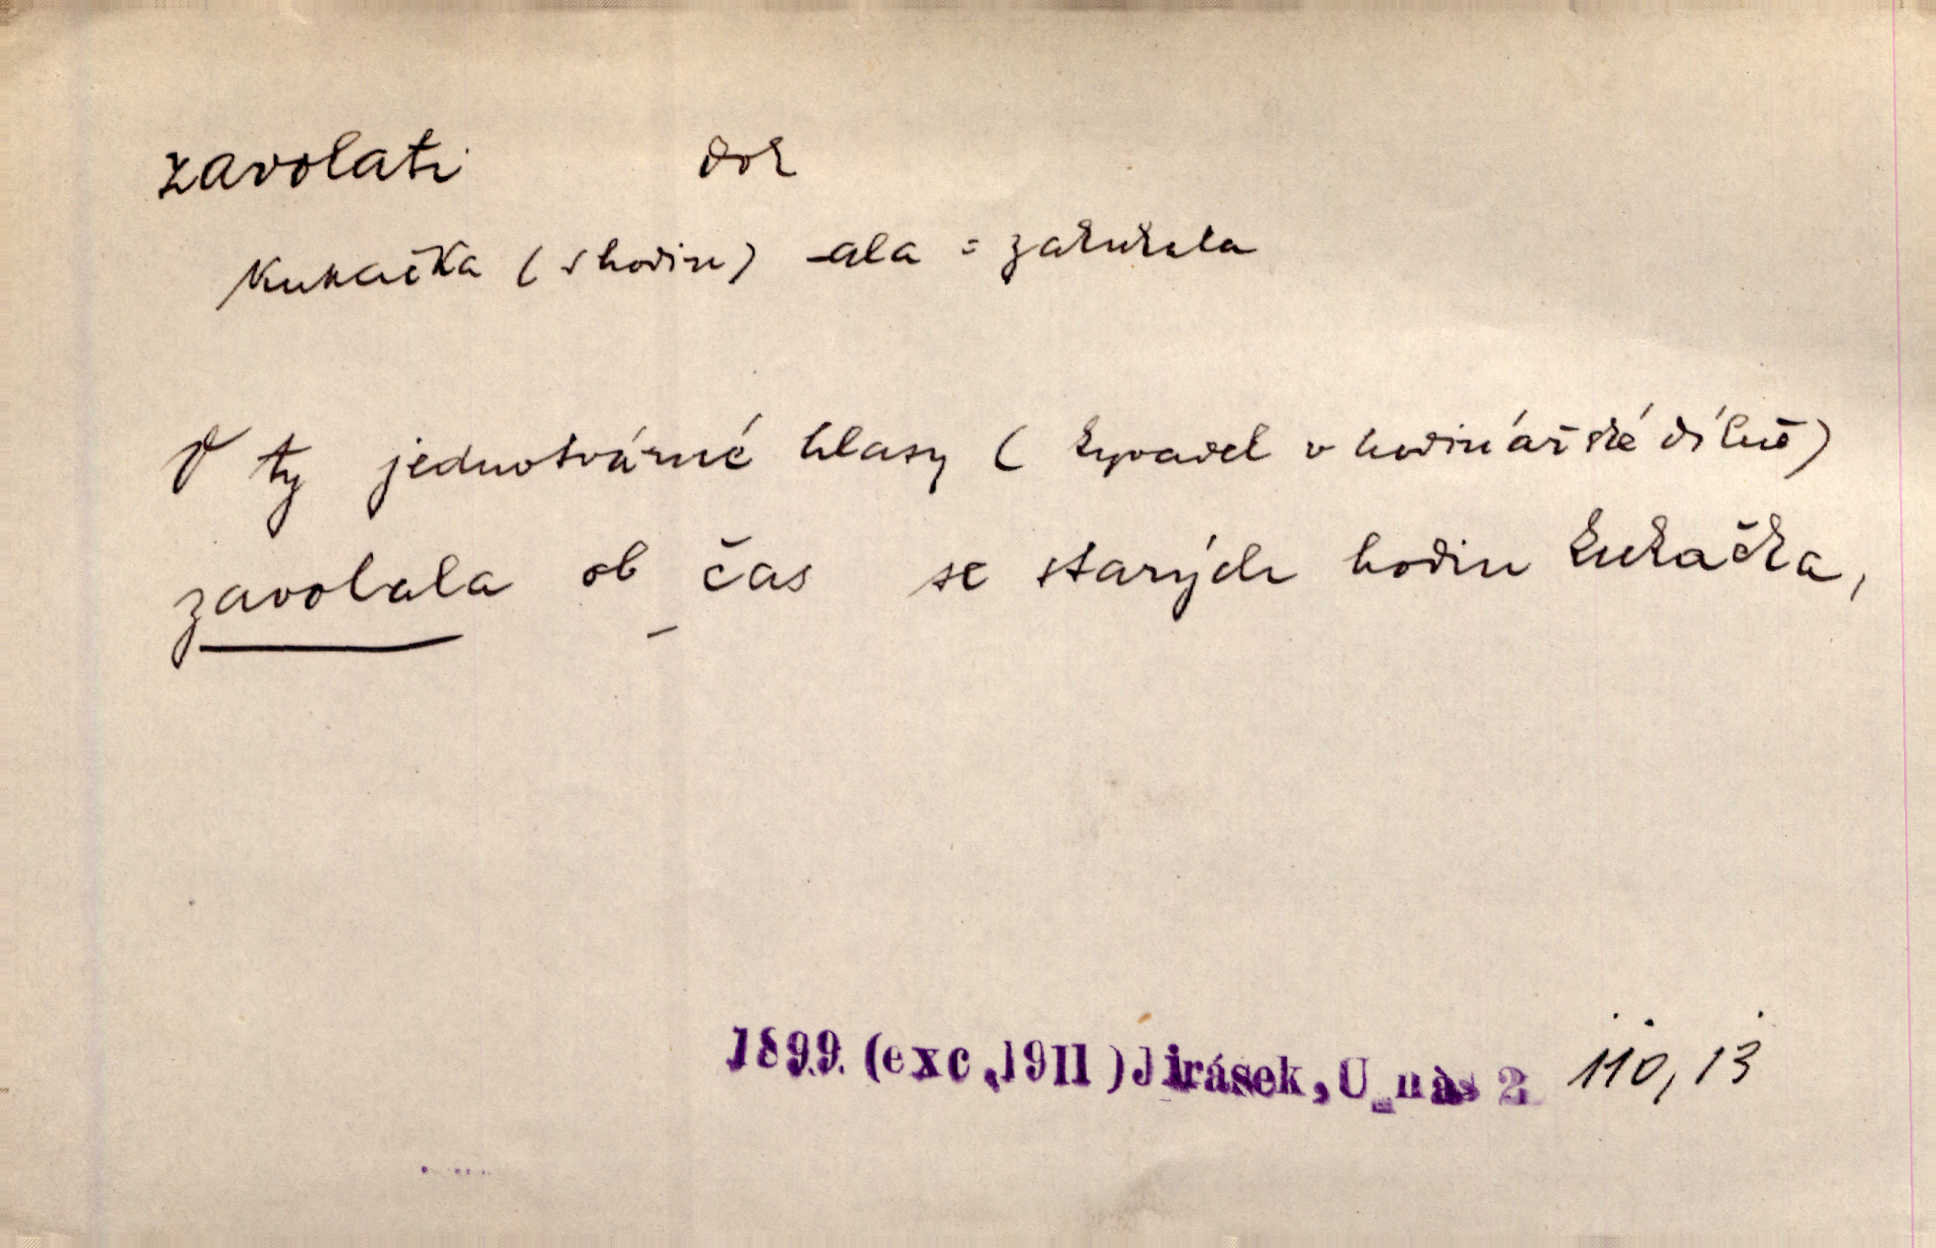 zavolati dok
Kukačka (s hodin) -ala = zakukala
V ty jednotvárné hlasy (kyvadel v hodinářské dílně)
zavolala ob čas se starých hodin kukačka,
1899. (exc. 1911) Jirásek, U nás 2 110, 13